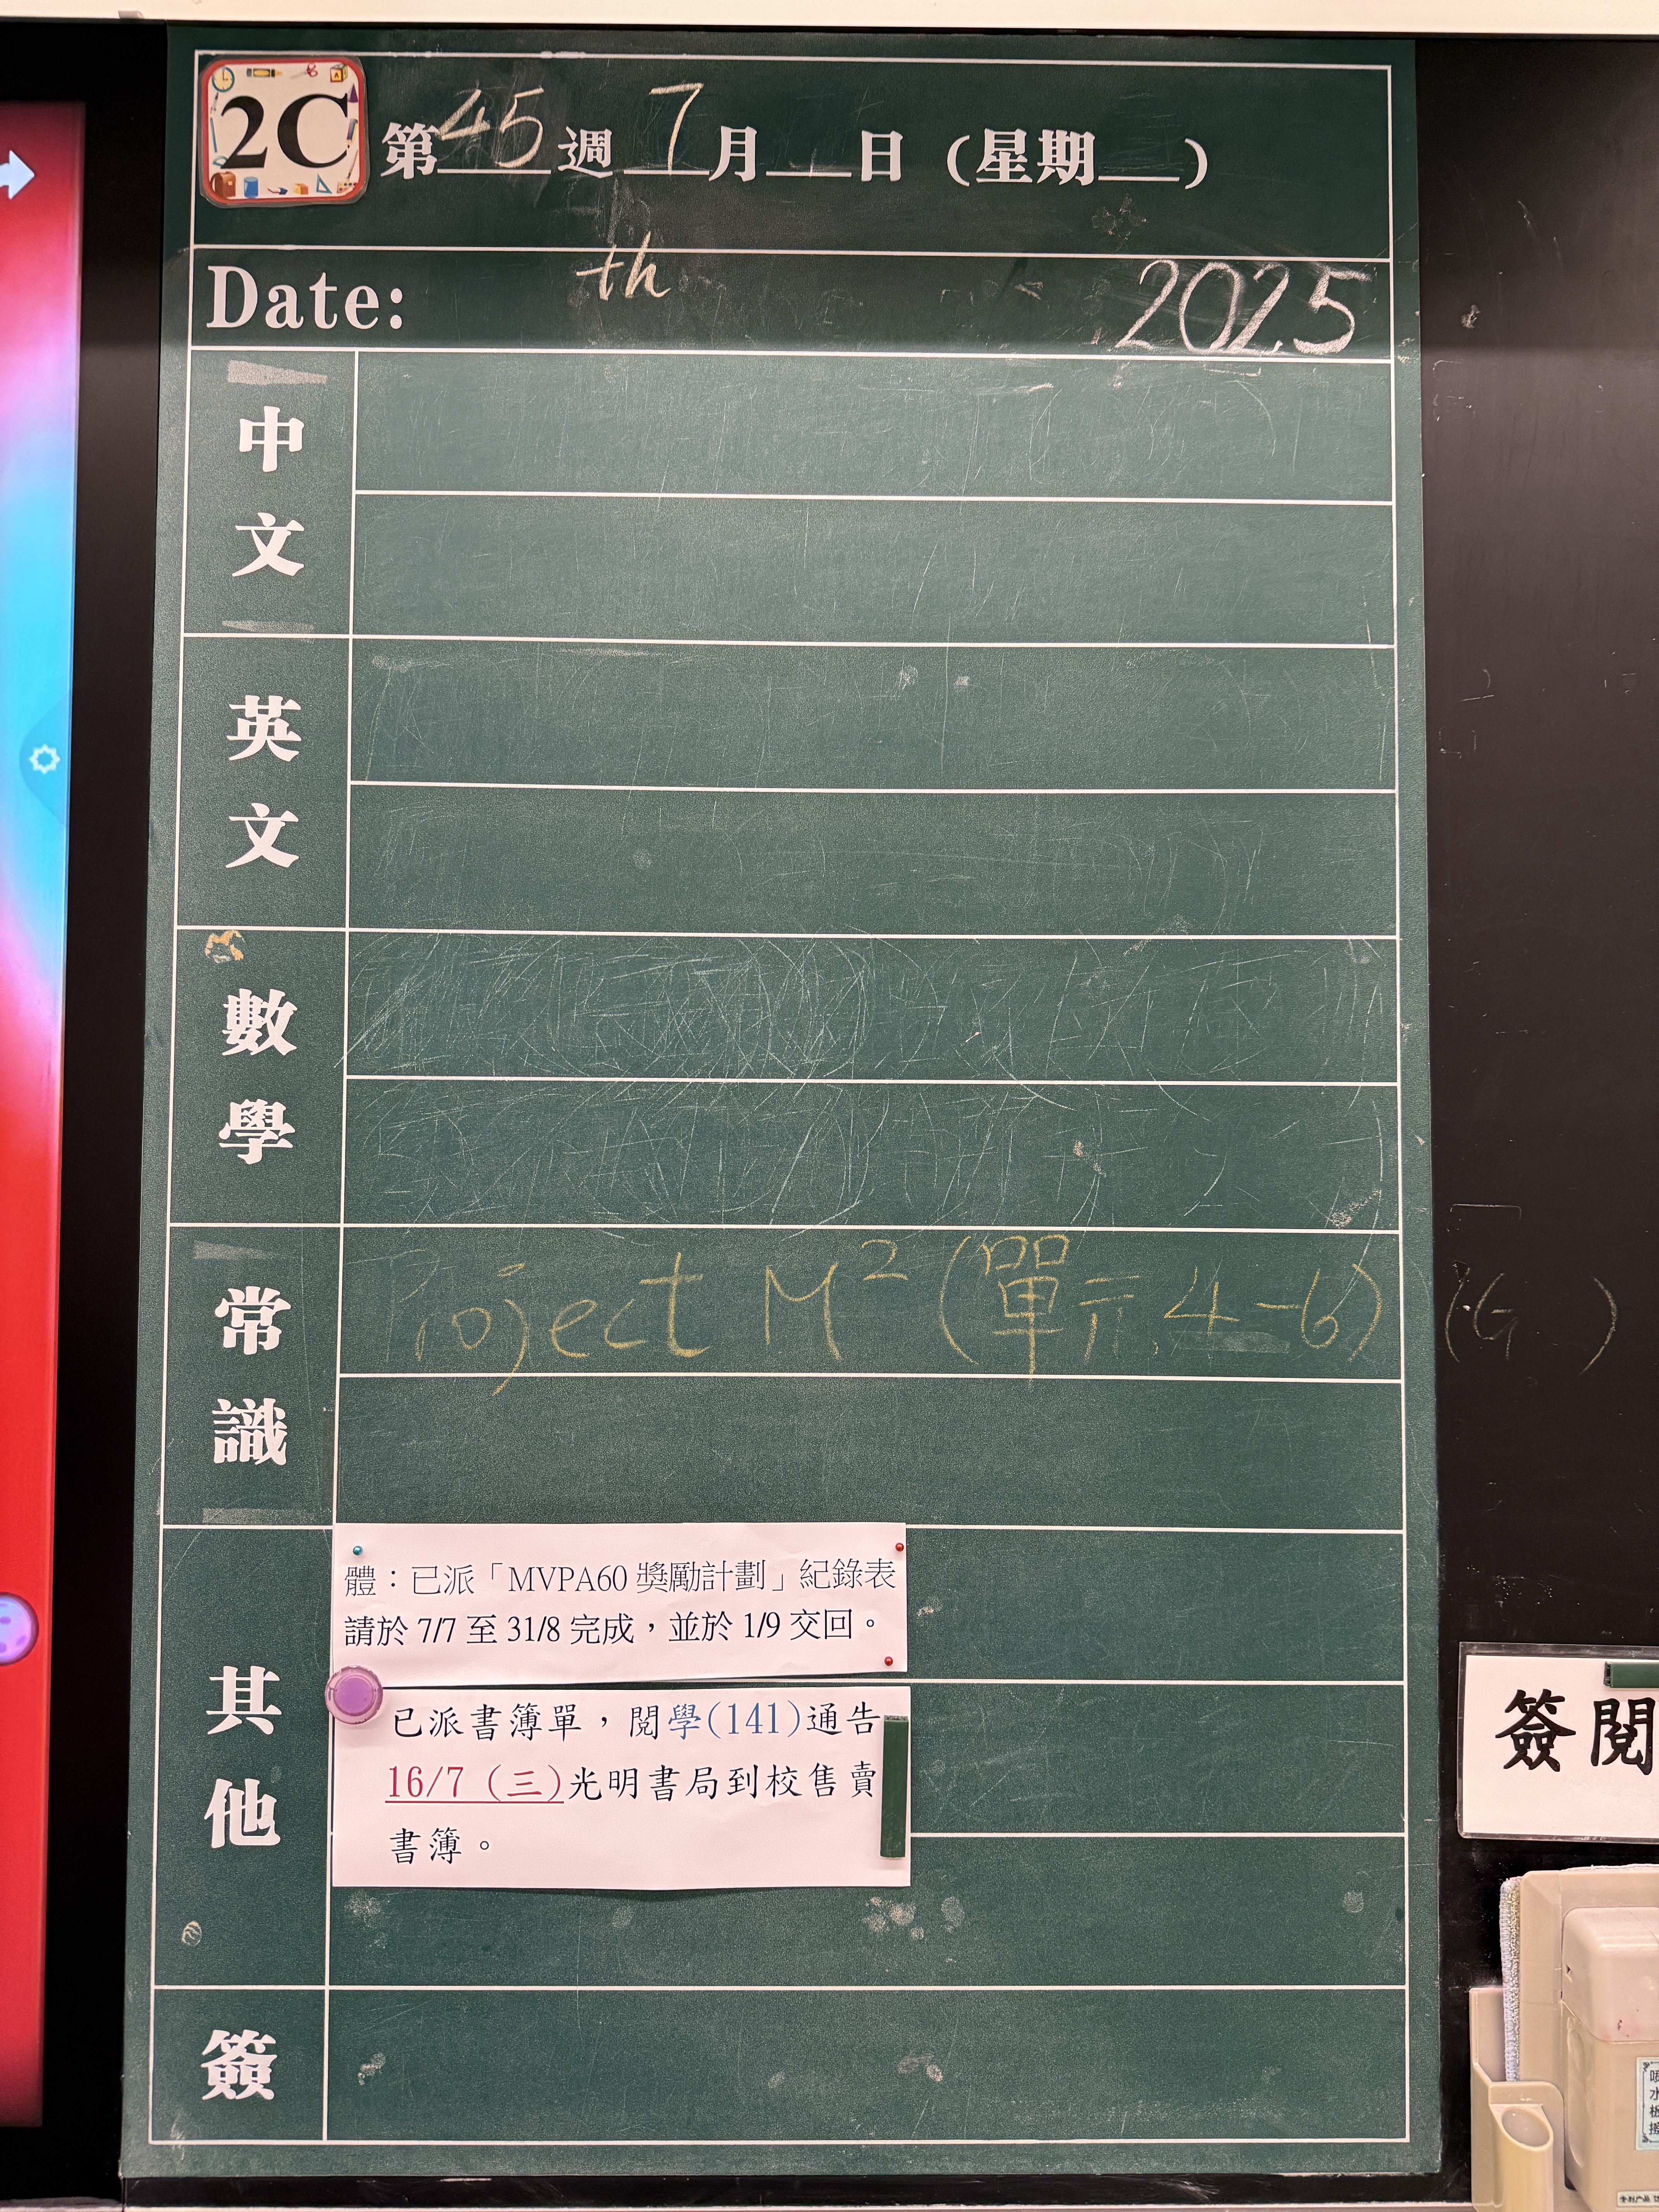 2C
第45週 7月 日 (星期 )
Date: th 2025
中文
英文
數學
常識
Project M² (單元4-6)
其他
體：已派「MVPA60 獎勵計劃」紀錄表
請於 7/7 至 31/8 完成，並於 1/9 交回。
已派書簿單，閱學(141)通告
16/7 (三)光明書局到校售賣
書簿。
簽
簽閱